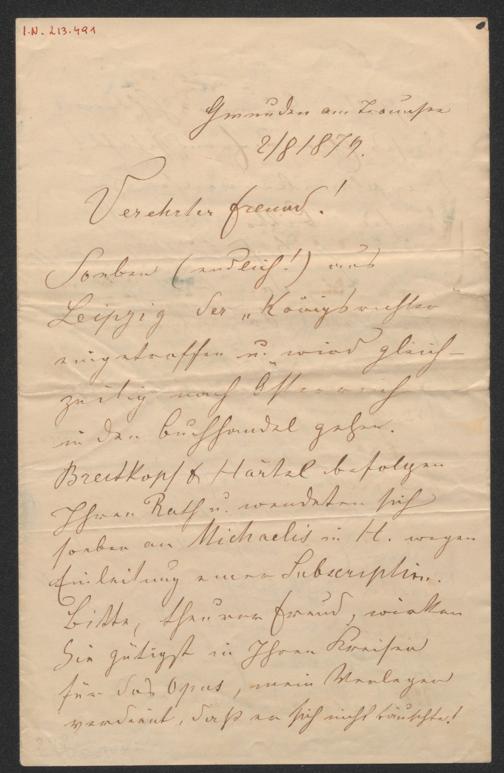 I.N. 213.491
Gmunden am Traunsee
2/8 1879.
Verehrter Freund!
Soeben (endlich!) aus
Leipzig der „Königsrichter“
eingetroffen u. wird gleich-
zeitig nach Österreich
in den Buchhandel gehen.
Breitkopf & Härtel befolgen
Ihren Rath u. wendeten sich
soeben an Michaelis in H. wegen
Einleitung einer Subscription.
Bitte, theurer Freund, wirken
Sie gütigst in Ihren Kreisen
für das Opus, mein Verleger
verdient, daß er sich nicht täuschte!